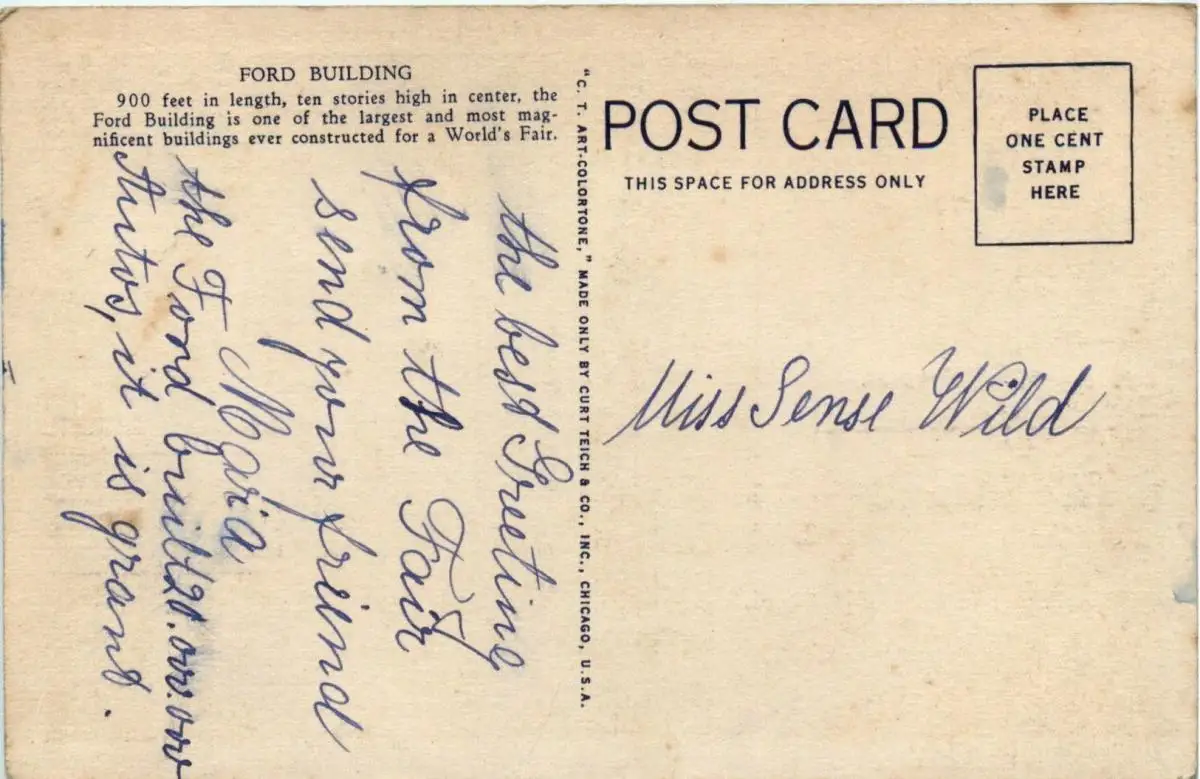 FORD BUILDING
900 feet in length, ten stories high in center, the
Ford Building is one of the largest and most mag-
nificent buildings ever constructed for a World's Fair.
the best Greeting
from the Fair
send your friend
Maria
the Ford build 20.000.000
Autos, it is grand.
"C. T. ART-COLORTONE," MADE ONLY BY CURT TEICH & CO., INC., CHICAGO, U.S.A.
POST CARD
THIS SPACE FOR ADDRESS ONLY
PLACE
ONE CENT
STAMP
HERE
Miss Sense Wild